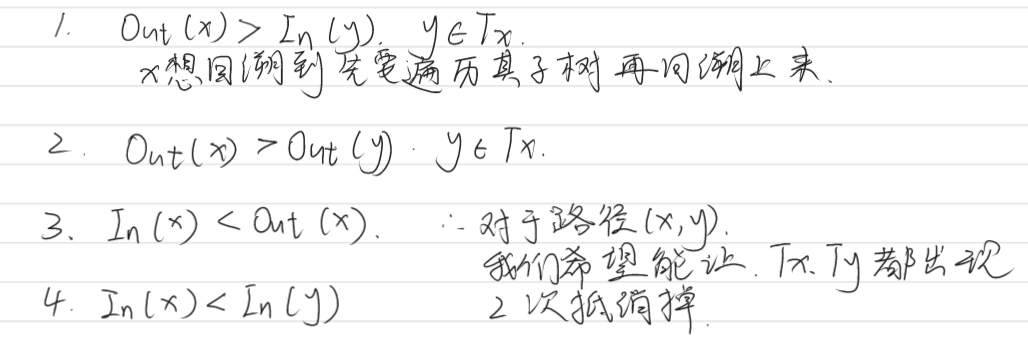 1. Out(x) > In(y). y∈Tx.
x想回溯到先要遍历其子树再回溯上来.
2. Out(x) > Out(y). y∈Tx.
3. In(x) < Out(x). ∴对于路径(x,y).
我们希望能让.Tx.Ty都出现
4. In(x) < In(y) 2次抵消掉.